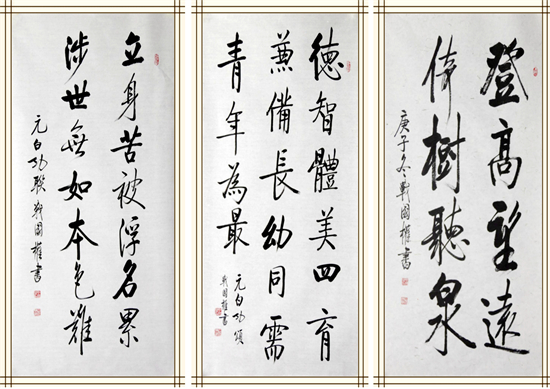 立身苦被浮名累
涉世無如本色難
元白功聯 戰國權書
德智體美四育
兼備長幼同需
青年為最
元白功頌
戰國權書
登高望遠
倚樹聽泉
庚子冬戰國權書